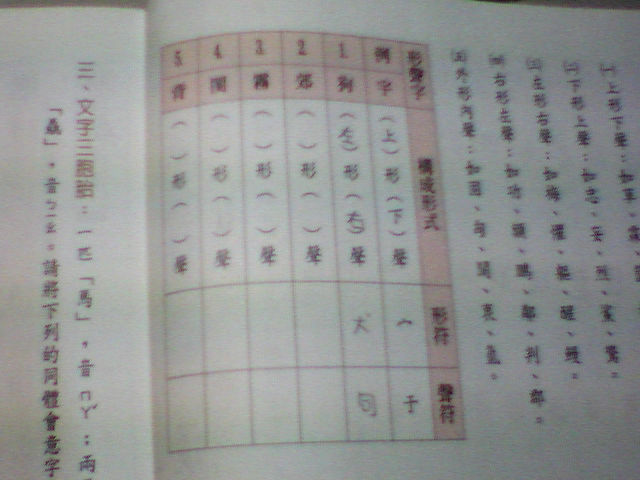 上形下聲：如草、
下形上聲：如忠、妄、烈、裳、
左形右聲：如梅、灌、軀、醒、饅。
右形左聲：如功、頸、鵬、
外形內聲：如固、
形聲字 構成形式 形符 聲符
例 字 （上）形（下）聲 宀 于
1. 狗 （左）形（右）聲 犬 句
2. 郊 （ ）形（ ）聲
3. 霧 （ ）形（ ）聲
4. 聞 （ ）形（ ）聲
5. （ ）形（ ）聲
三、文字三胞胎：一匹「馬」，音ㄇㄚˇ；兩
「驫」，音ㄅㄧㄠ。請將下列的同體會意字